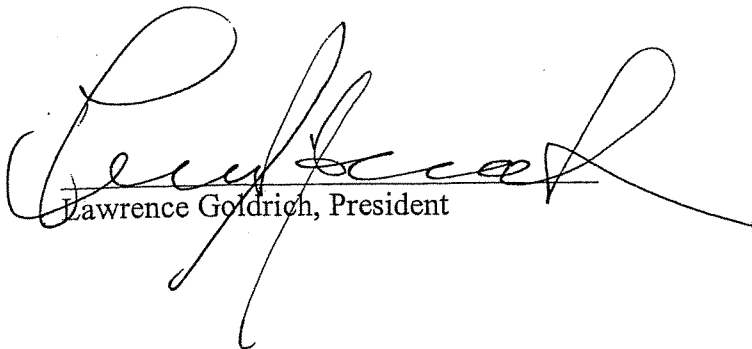 Lawrence Goldrich, President